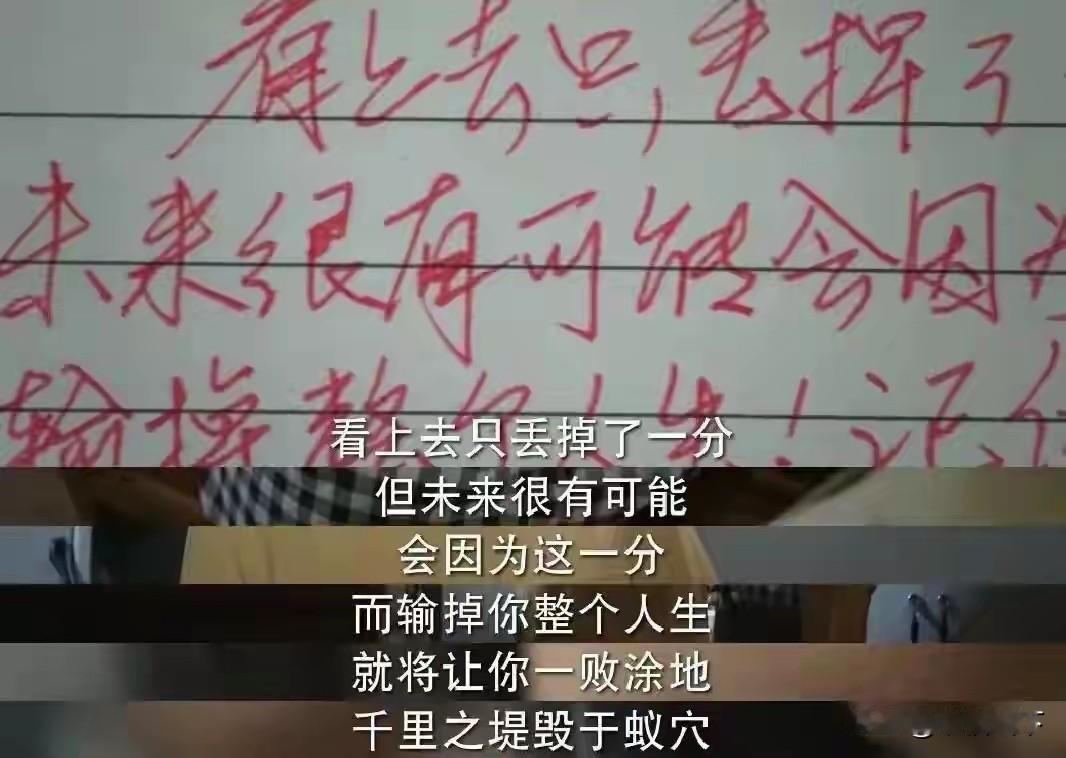 看上去只丢掉了
未来很有可能会因为
输掉整个人生！记住
看上去只丢掉了一分
但未来很有可能
会因为这一分
而输掉你整个人生
就将让你一败涂地
千里之堤毁于蚁穴